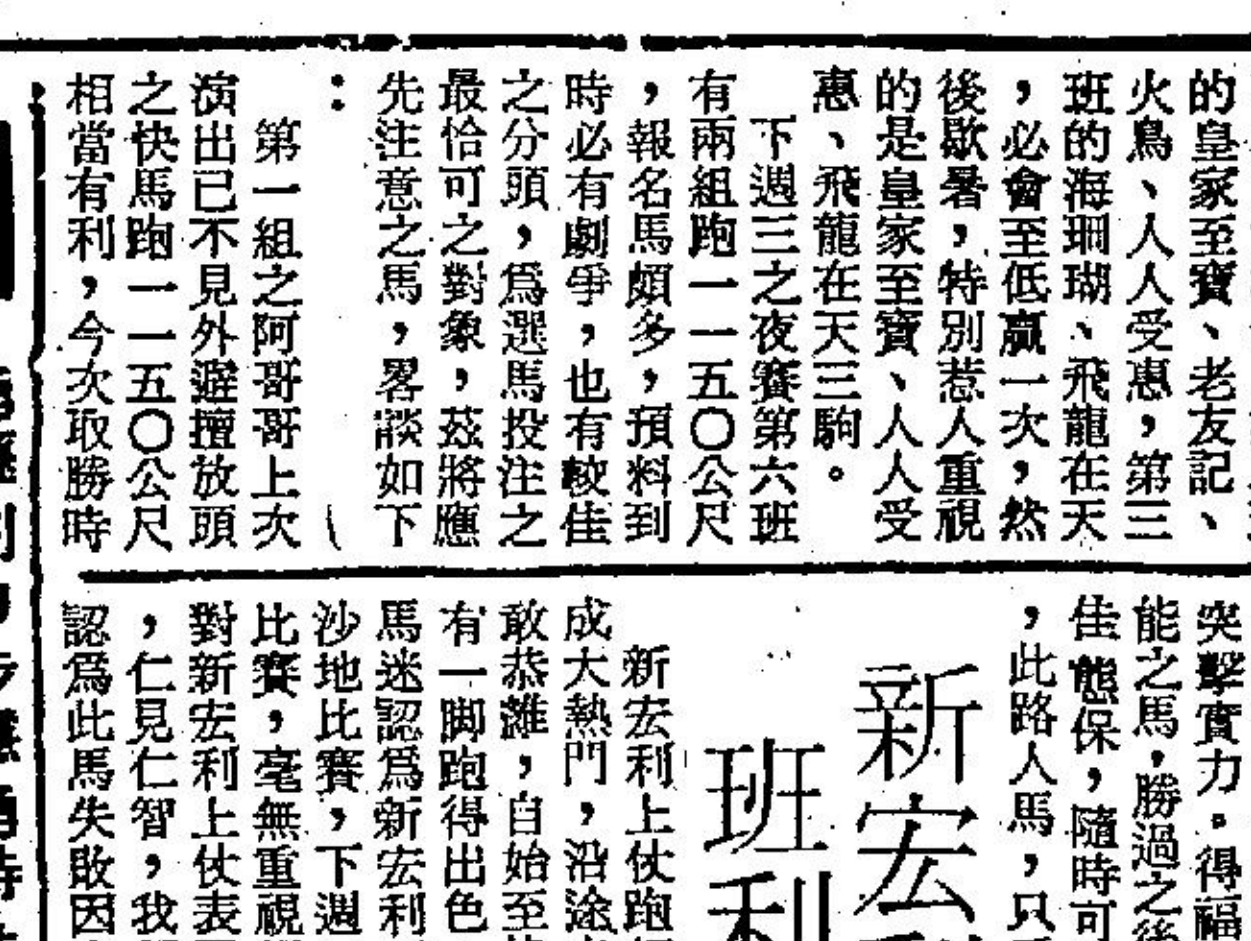 的皇家至寶、老友記、
火鳥、人人受惠，第三
班的海珊瑚、飛龍在天
，必會至低贏一次，然
後歇暑，特別惹人重視
的是皇家至寶、人人受
惠、飛龍在天三駒。
下週三之夜賽第六班
有兩組跑一一五〇公尺
，報名馬頗多，預料到
時必有劇爭，也有較佳
之分頭，爲選馬投注之
最恰可之對象，茲將應
先注意之馬，畧談如下
：
第一組之阿哥哥上次
演出已不見外避擅放頭
之快馬跑一一五〇公尺
相當有利，今次取勝時
突擊實力。得福
能之馬，勝過之後
佳態保，隨時可
，此路人馬，只
新宏
班利
新宏利上仗跑
成大熱門，沿途
敢恭維，自始至
有一脚跑得出色
馬迷認爲新宏利
沙地比賽，下週
比賽，毫無重視
對新宏利上仗表
，仁見仁智，我
認爲此馬失敗因